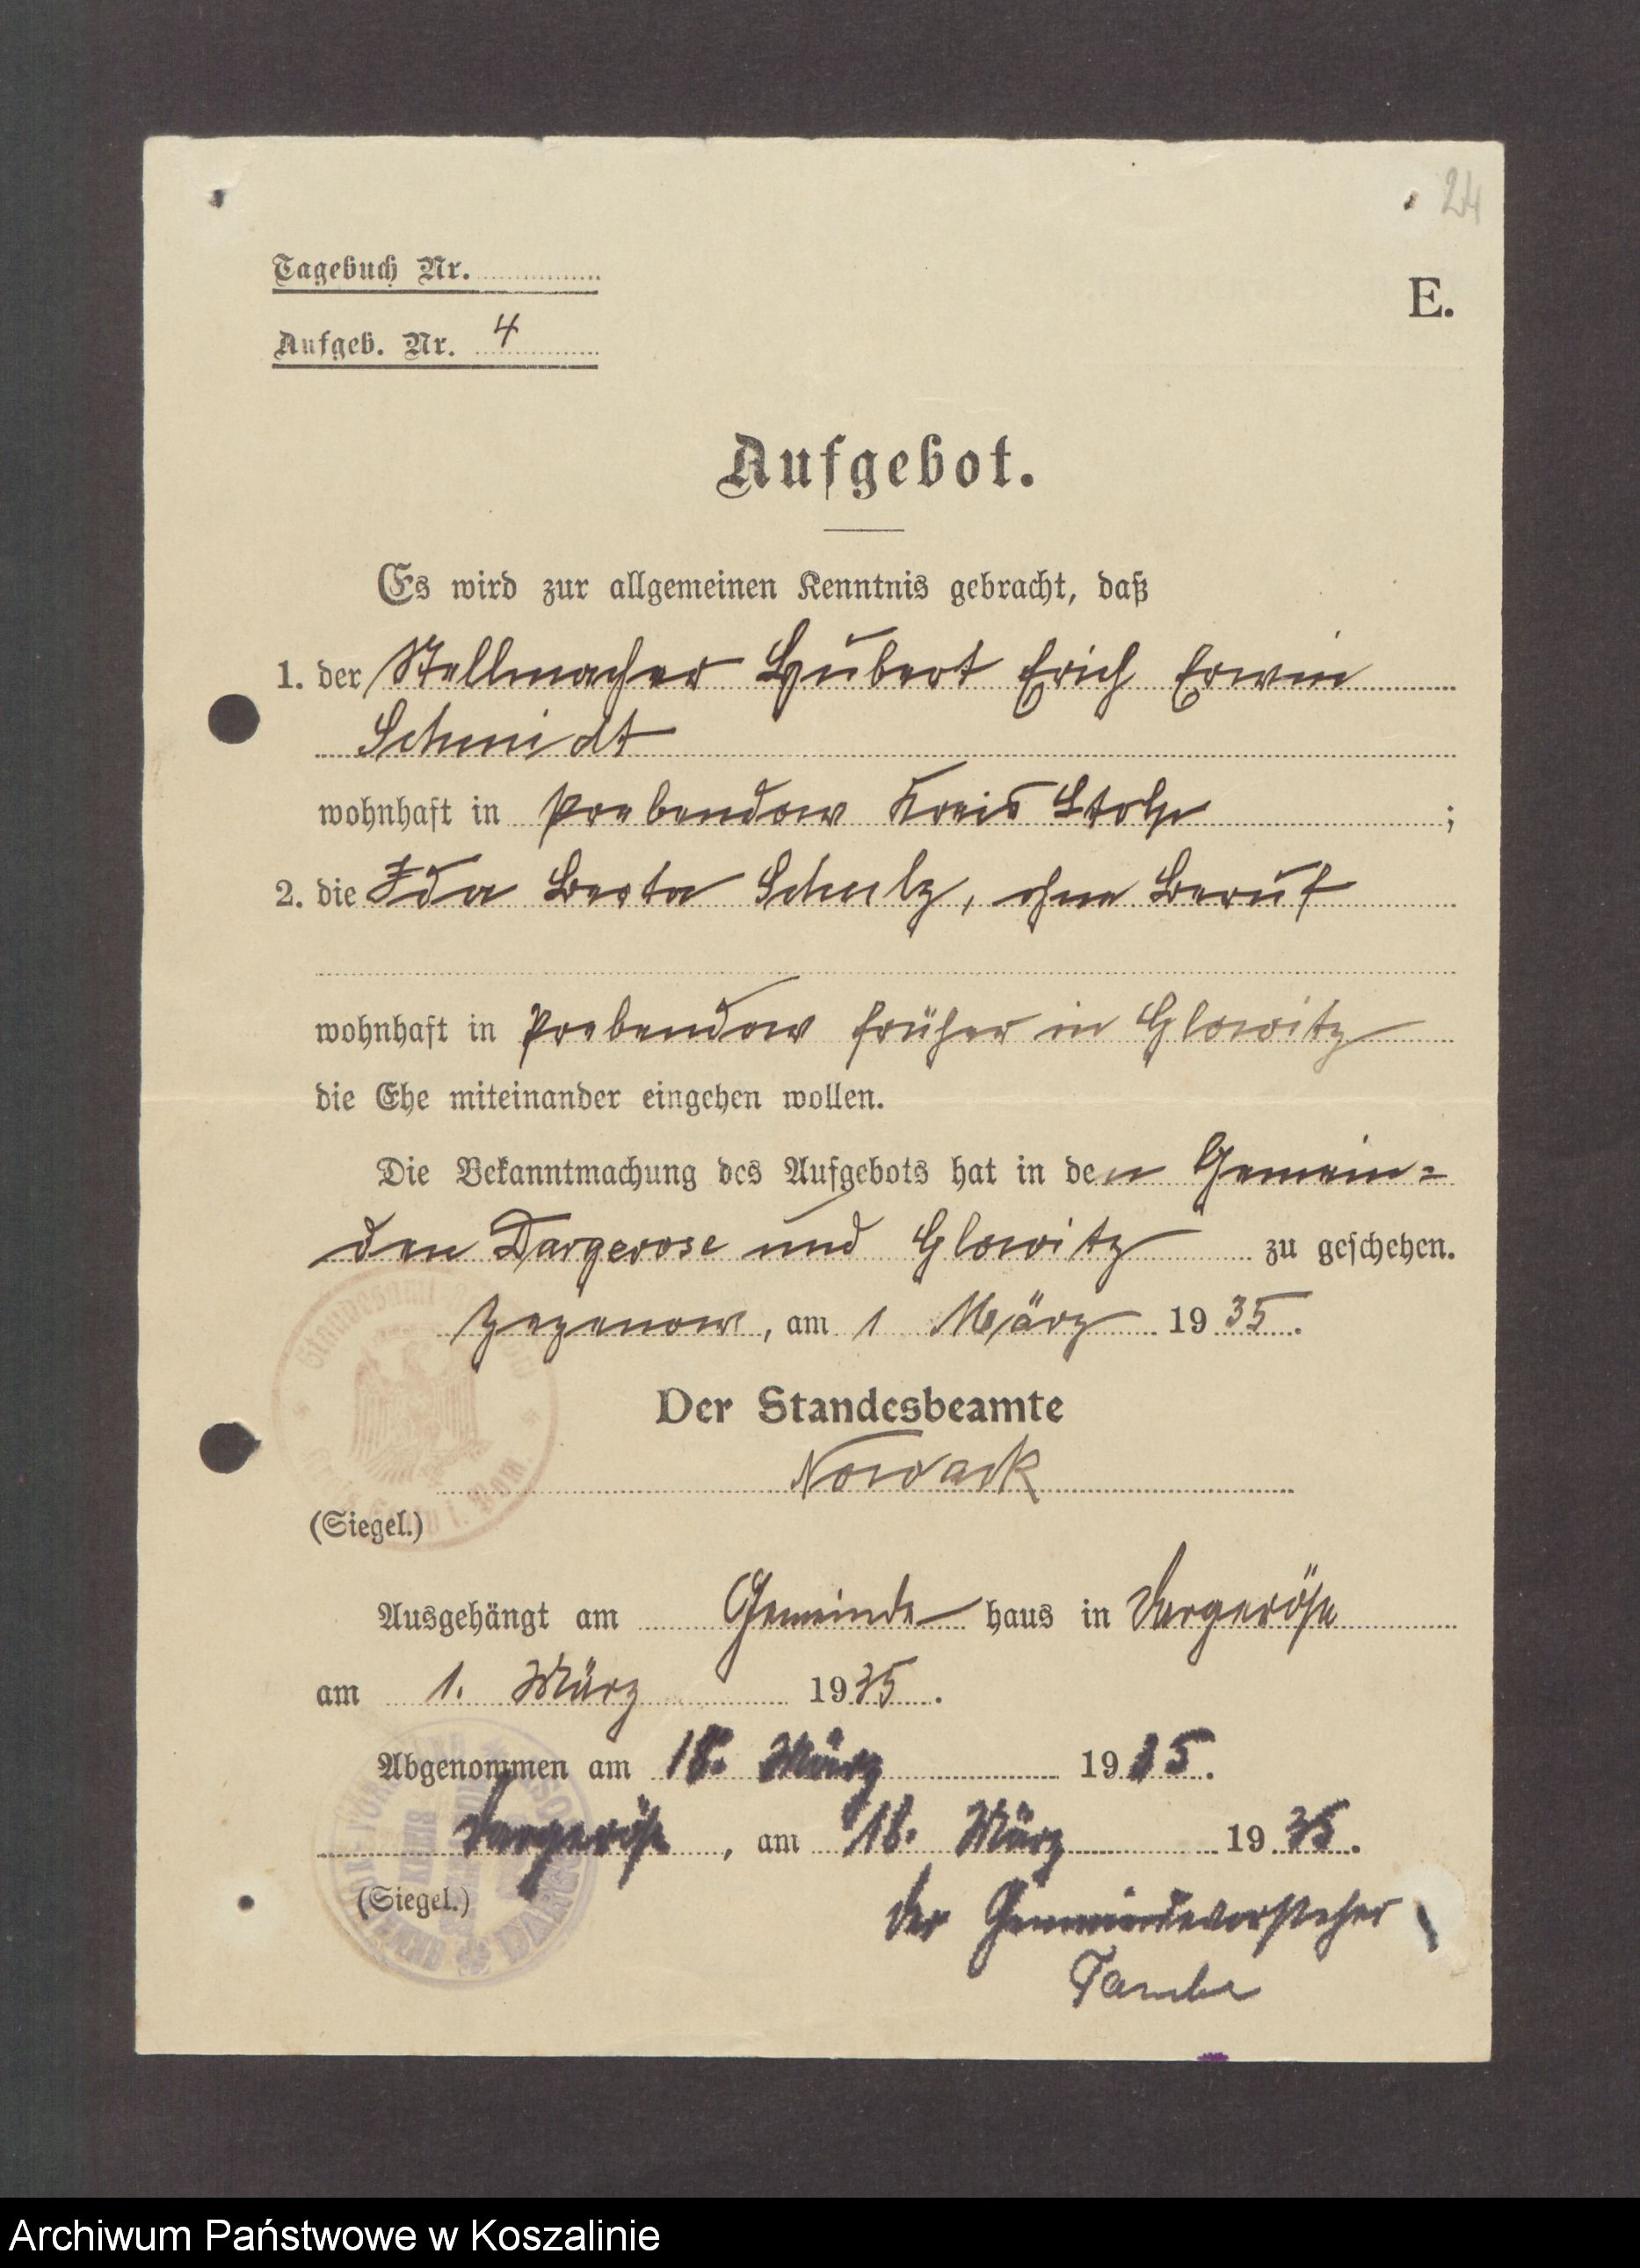 24
Tagebuch Nr.
E.
Aufgeb. Nr. 4
Aufgebot.
Es wird zur allgemeinen Kenntnis gebracht, daß
1. der Stellmacher Hubert Erich Erwin
Schmidt
wohnhaft in Prebendow Kreis Stolp ;
2. die Ida Berta Schulz, ohne Beruf
wohnhaft in Prebendow früher in Glowitz
die Ehe miteinander eingehen wollen.
Die Bekanntmachung des Aufgebots hat in den Gemein=
den Dargerose und Glowitz zu geschehen.
Zezenow, am 1 März 1935.
Der Standesbeamte
Nowack
(Siegel.)
Ausgehängt am Gemeinde haus in Dargeröse
am 1. März 1935.
Abgenommen am 18. März 1935.
Dargeröse, am 18. März 1935.
(Siegel.)
Der Gemeindevorsteher
Archiwum Państwowe w Koszalinie